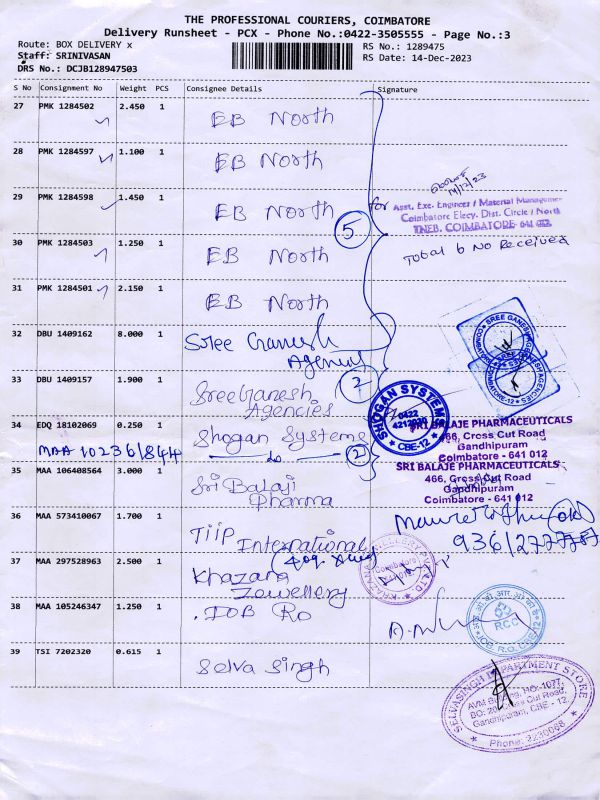 THE PROFESSIONAL COURIERS, COIMBATORE
Delivery Runsheet - PCX - Phone No.:0422-3505555 - Page No.:3
Route: BOX DELIVERY x
Staff: SRINIVASAN
DRS No.: DCJB128947503
RS No.: 1289475
RS Date: 14-Dec-2023
S No Consignment No Weight PCS Consignee Details Signature
27 PMK 1284502 2.450 1 EB North
28 PMK 1284597 1.100 1 EB North
29 PMK 1284598 1.450 1 EB North
30 PMK 1284503 1.250 1 EB North
31 PMK 1284501 2.150 1 EB North
5
14/12/23
for Asst. Exe. Engineer / Material Management
Coimbatore Elecy. Dist. Circle / North
TNEB, COIMBATORE- 641 012.
Total 6 No Received
32 DBU 1409162 8.000 1 Sree Ganesh
Agencies
33 DBU 1409157 1.900 1 Sree Ganesh
Agencies
2
SREE GANESH AGENCIES
COIMBATORE-12
34 EDQ 18102069 0.250 1 Shogan Systems
MAA 102361844 do 2
SHOGAN SYSTEMS
0422
CBE-12
SRI BALAJE PHARMACEUTICALS
466, Cross Cut Road
Gandhipuram
Coimbatore - 641 012
SRI BALAJE PHARMACEUTICALS
466, Cross Cut Road
Gandhipuram
Coimbatore - 641 012
35 MAA 106408564 3.000 1 Sri Balaji
Pharma
36 MAA 573410067 1.700 1 TiiP International
37 MAA 297528963 2.500 1 Khazana
Jewellery
38 MAA 105246347 1.250 1 IOB RO
R.C.C
39 TSI 7202320 0.615 1 Selva Singh
SELVASINGH DEPARTMENT STORE
Gandhipuram, CBE - 12.
Phone: 3236068